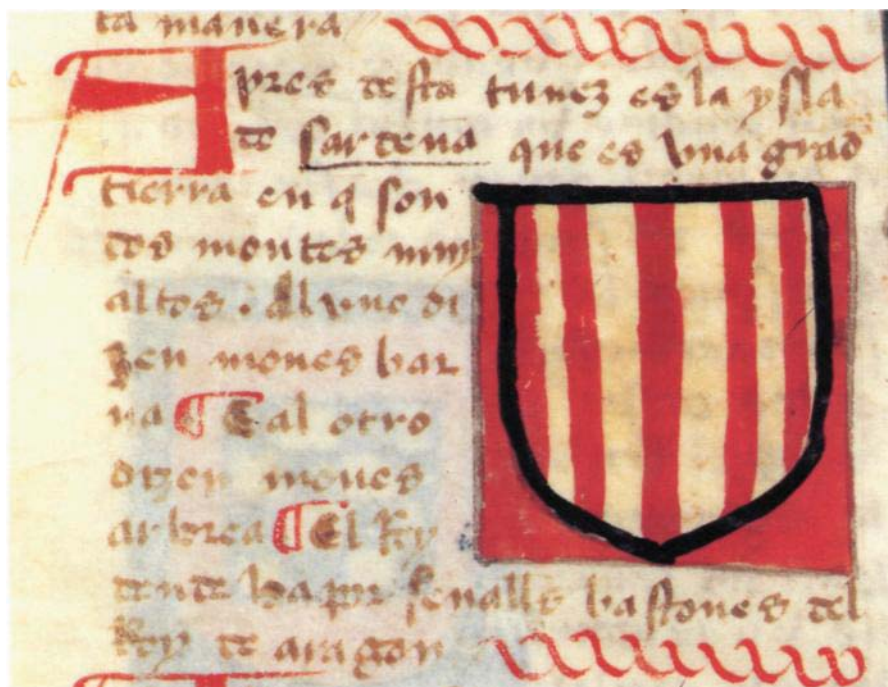 ta manera
Apres desta tunez es la ysla
de sardeña que es vna grad
tierra en q son
dos montes muy
altos. Al vno di
zen mones bar
na ¶ E al otro
dizen mones
arborea ¶ El Rey
dende ha por señalls bastones del
Rey de aragon